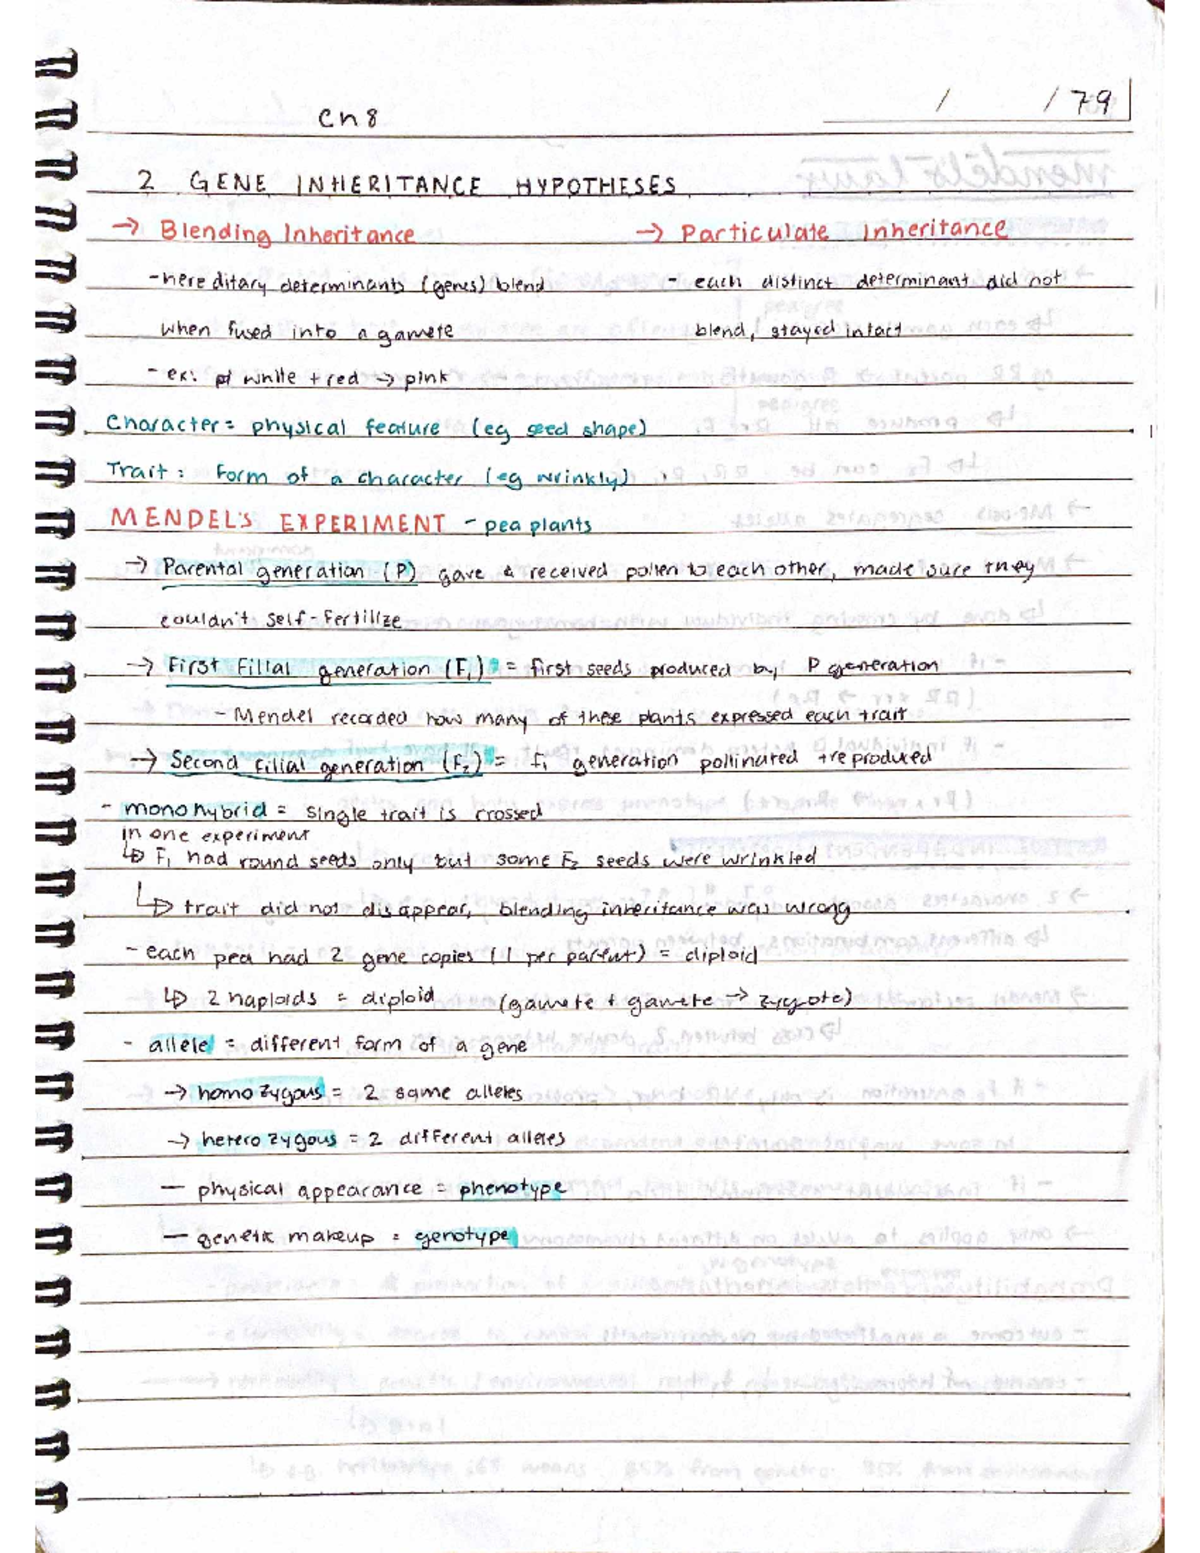 / / 79
Ch 8
2 GENE INHERITANCE HYPOTHESES
→ Blending Inheritance → Particulate Inheritance
- hereditary determinants (genes) blend - each distinct determinant did not
when fused into a gamete blend, stayed intact
- ex: white + red → pink
Character = physical feature (eg seed shape)
Trait: Form of a character (eg wrinkly)
MENDEL'S EXPERIMENT - pea plants
→ Parental generation (P) gave & received pollen to each other, made sure they
couldn't self-fertilize
→ First Filial generation (F₁) = first seeds produced by P generation
- Mendel recorded how many of these plants expressed each trait
→ Second filial generation (F₂) = f₁ generation pollinated + reproduced
- monohybrid = single trait is crossed
in one experiment
↳ F₁ had round seeds only but some F₂ seeds were wrinkled
↳ trait did not disappear, blending inheritance was wrong
- each pea had 2 gene copies (1 per parent) = diploid
↳ 2 haploids = diploid (gamete + gamete → zygote)
- allele = different form of a gene
→ homozygous = 2 same alleles
→ heterozygous = 2 different alleles
— physical appearance = phenotype
— genetic makeup = genotype